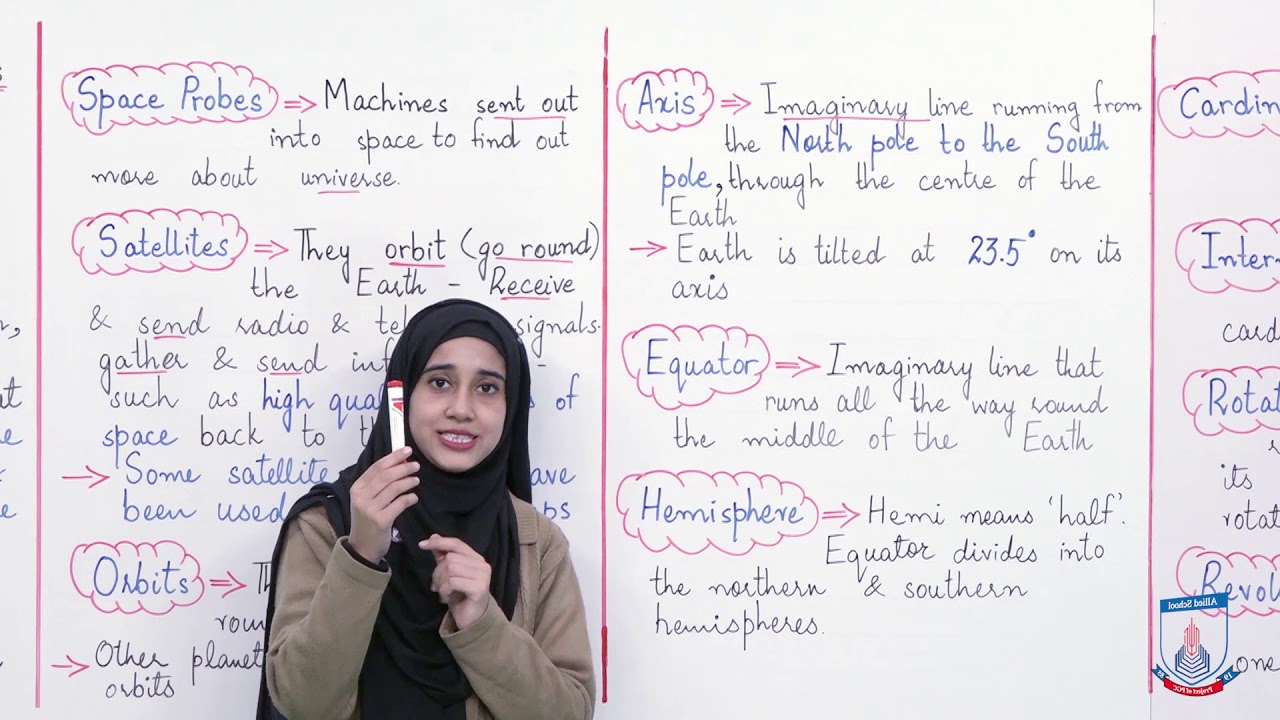 Space Probes ⇒ Machines sent out
into space to find out
more about universe.
Satellites ⇒ They orbit (go round)
the Earth - Receive
& send radio & signals.
gather & send -
such as high of
space back to
→ Some
been used
Orbits ⇒
→ Other
orbits
Axis ⇒ Imaginary line running from
the North pole to the South
pole, through the centre of the
Earth
→ Earth is tilted at 23.5° on its
axis
Equator ⇒ Imaginary line that
runs all the way round
the middle of the Earth
Hemisphere ⇒ Hemi means 'half'.
Equator divides into
the northern & southern
hemispheres.
its
one
Allied School
Project of PGC